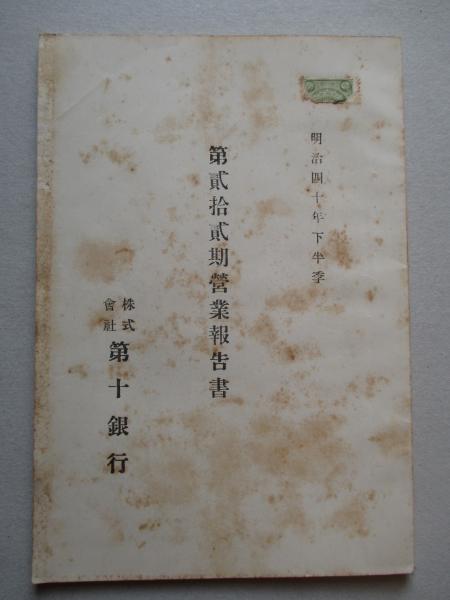 明治四十年下半季
第貳拾貳期營業報告書
株式會社第十銀行